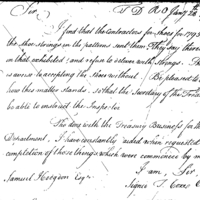 Sir,
T D R O Aug 26
I find that the contractors for shoes for 1795
the shoe strings in the patterns sent them. They say there
in that exhibited and refuse to return with strings. This
is worse in accepting the shoes without. Be pleased to
how this matter stands, so that the Secretary of the Treas
be able to instruct the Inspector
The along with the Treasury Business for the
Department, I have constantly aided when requested
completion of those things which were commenced by m
I am, Sir
Samuel Hodgdon Esqr
Signed T. Coxe C